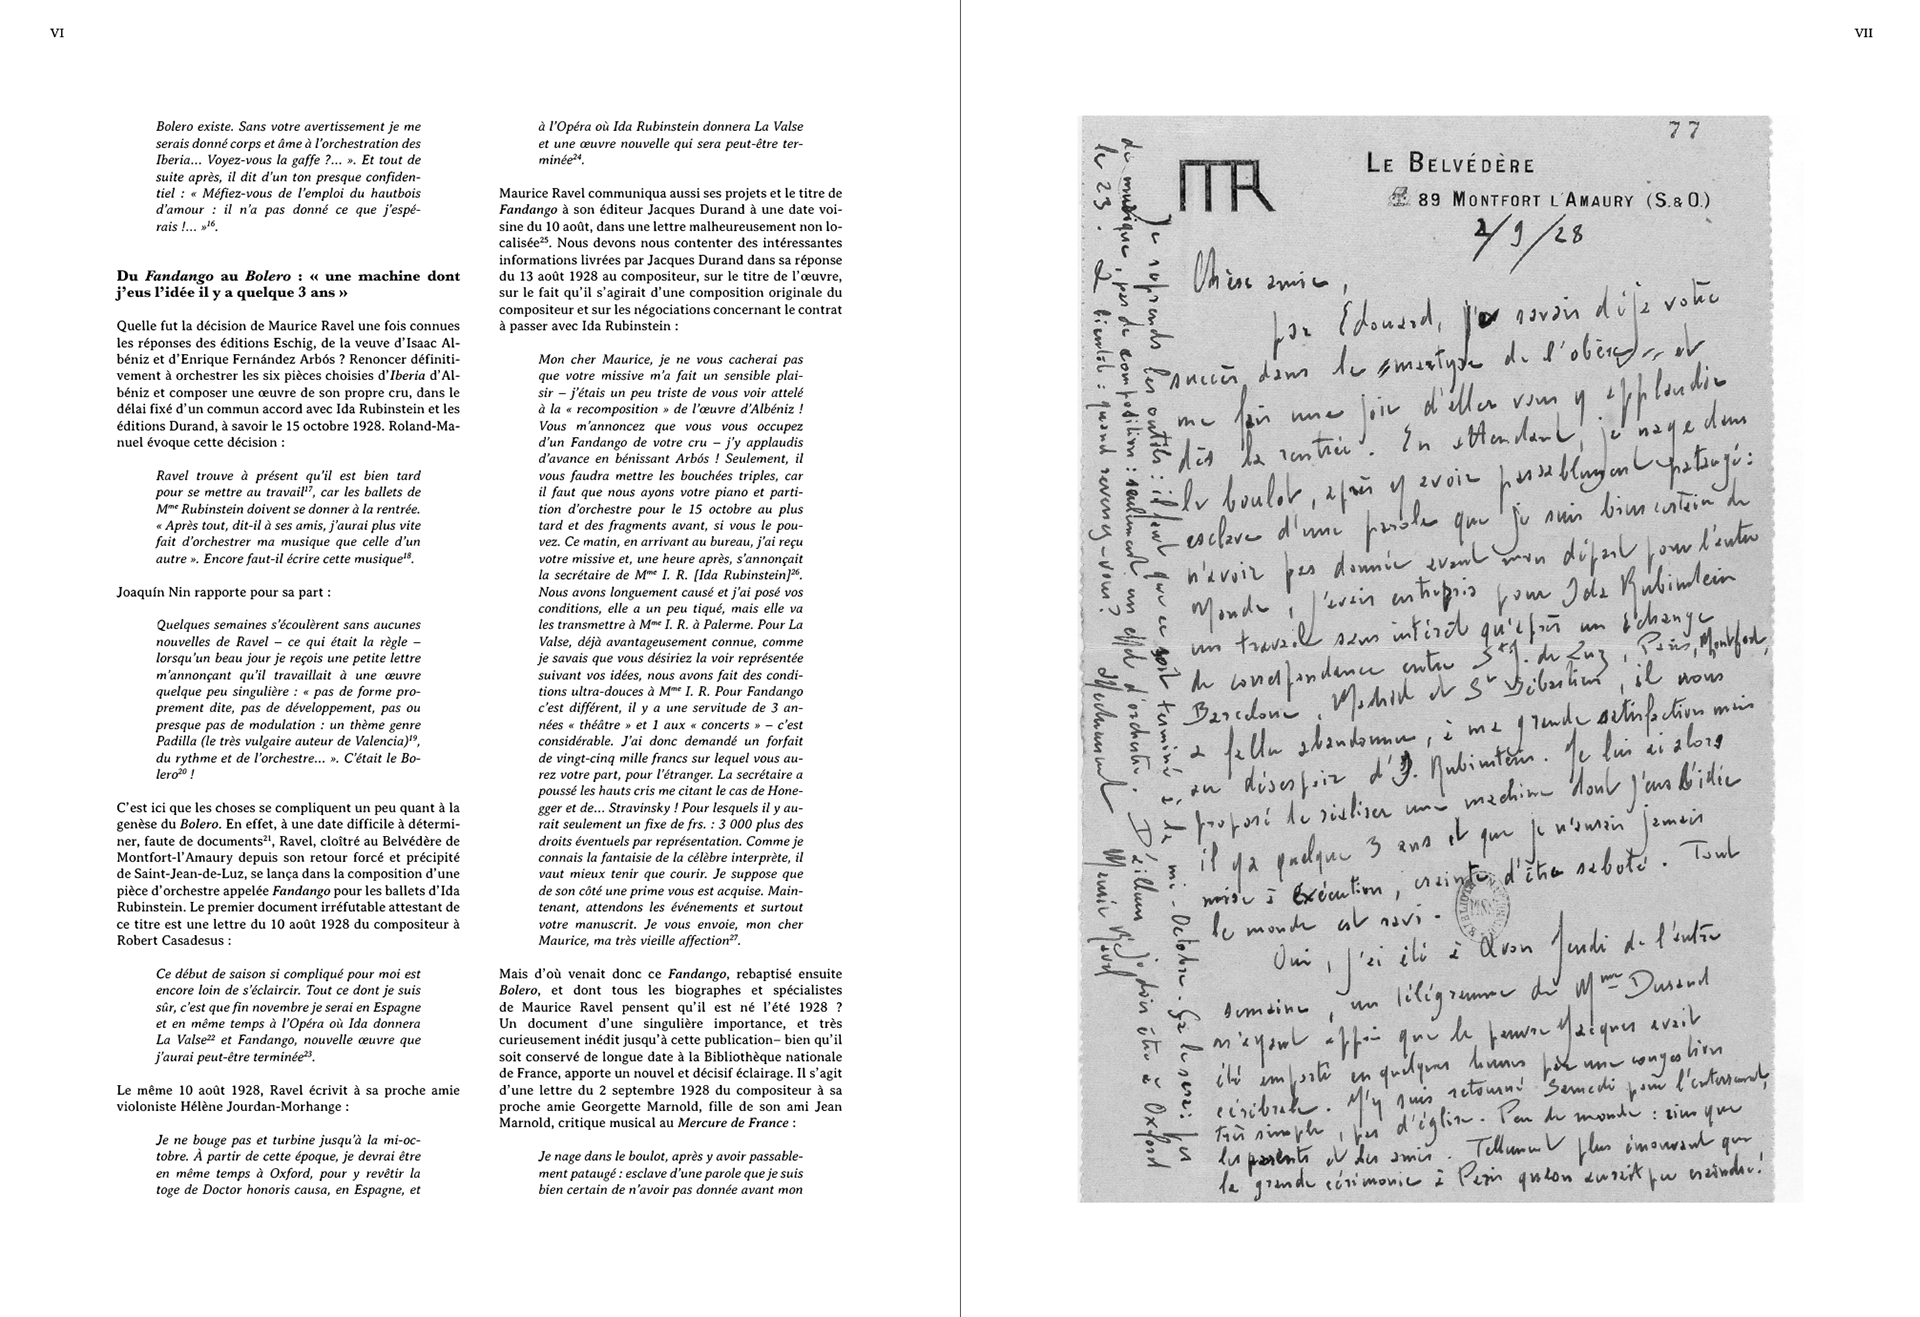 VI
Bolero existe. Sans votre avertissement je me
serais donné corps et âme à l'orchestration des
Iberia... Voyez-vous la gaffe ?... ». Et tout de
suite après, il dit d'un ton presque confiden-
tiel : « Méfiez-vous de l'emploi du hautbois
d'amour : il n'a pas donné ce que j'espé-
rais !... »16.
Du Fandango au Bolero : « une machine dont
j'eus l'idée il y a quelque 3 ans »
Quelle fut la décision de Maurice Ravel une fois connues
les réponses des éditions Eschig, de la veuve d'Isaac Al-
béniz et d'Enrique Fernández Arbós ? Renoncer définiti-
vement à orchestrer les six pièces choisies d'Iberia d'Al-
béniz et composer une œuvre de son propre cru, dans le
délai fixé d'un commun accord avec Ida Rubinstein et les
éditions Durand, à savoir le 15 octobre 1928. Roland-Ma-
nuel évoque cette décision :
Ravel trouve à présent qu'il est bien tard
pour se mettre au travail17, car les ballets de
Mme Rubinstein doivent se donner à la rentrée.
« Après tout, dit-il à ses amis, j'aurai plus vite
fait d'orchestrer ma musique que celle d'un
autre ». Encore faut-il écrire cette musique18.
Joaquín Nin rapporte pour sa part :
Quelques semaines s'écoulèrent sans aucunes
nouvelles de Ravel – ce qui était la règle –
lorsqu'un beau jour je reçois une petite lettre
m'annonçant qu'il travaillait à une œuvre
quelque peu singulière : « pas de forme pro-
prement dite, pas de développement, pas ou
presque pas de modulation : un thème genre
Padilla (le très vulgaire auteur de Valencia)19,
du rythme et de l'orchestre... ». C'était le Bo-
lero20 !
C'est ici que les choses se compliquent un peu quant à la
genèse du Bolero. En effet, à une date difficile à détermi-
ner, faute de documents21, Ravel, cloîtré au Belvédère de
Montfort-l'Amaury depuis son retour forcé et précipité
de Saint-Jean-de-Luz, se lança dans la composition d'une
pièce d'orchestre appelée Fandango pour les ballets d'Ida
Rubinstein. Le premier document irréfutable attestant de
ce titre est une lettre du 10 août 1928 du compositeur à
Robert Casadesus :
Ce début de saison si compliqué pour moi est
encore loin de s'éclaircir. Tout ce dont je suis
sûr, c'est que fin novembre je serai en Espagne
et en même temps à l'Opéra où Ida donnera
La Valse22 et Fandango, nouvelle œuvre que
j'aurai peut-être terminée23.
Le même 10 août 1928, Ravel écrivit à sa proche amie
violoniste Hélène Jourdan-Morhange :
Je ne bouge pas et turbine jusqu'à la mi-oc-
tobre. À partir de cette époque, je devrai être
en même temps à Oxford, pour y revêtir la
toge de Doctor honoris causa, en Espagne, et
à l'Opéra où Ida Rubinstein donnera La Valse
et une œuvre nouvelle qui sera peut-être ter-
minée24.
Maurice Ravel communiqua aussi ses projets et le titre de
Fandango à son éditeur Jacques Durand à une date voi-
sine du 10 août, dans une lettre malheureusement non lo-
calisée25. Nous devons nous contenter des intéressantes
informations livrées par Jacques Durand dans sa réponse
du 13 août 1928 au compositeur, sur le titre de l'œuvre,
sur le fait qu'il s'agirait d'une composition originale du
compositeur et sur les négociations concernant le contrat
à passer avec Ida Rubinstein :
Mon cher Maurice, je ne vous cacherai pas
que votre missive m'a fait un sensible plai-
sir – j'étais un peu triste de vous voir attelé
à la « recomposition » de l'œuvre d'Albéniz !
Vous m'annoncez que vous vous occupez
d'un Fandango de votre cru – j'y applaudis
d'avance en bénissant Arbós ! Seulement, il
vous faudra mettre les bouchées triples, car
il faut que nous ayons votre piano et parti-
tion d'orchestre pour le 15 octobre au plus
tard et des fragments avant, si vous le pou-
vez. Ce matin, en arrivant au bureau, j'ai reçu
votre missive et, une heure après, s'annonçait
la secrétaire de Mme I. R. [Ida Rubinstein]26.
Nous avons longuement causé et j'ai posé vos
conditions, elle a un peu tiqué, mais elle va
les transmettre à Mme I. R. à Palerme. Pour La
Valse, déjà avantageusement connue, comme
je savais que vous désiriez la voir représentée
suivant vos idées, nous avons fait des condi-
tions ultra-douces à Mme I. R. Pour Fandango
c'est différent, il y a une servitude de 3 an-
nées « théâtre » et 1 aux « concerts » – c'est
considérable. J'ai donc demandé un forfait
de vingt-cinq mille francs sur lequel vous au-
rez votre part, pour l'étranger. La secrétaire a
poussé les hauts cris me citant le cas de Hone-
gger et de... Stravinsky ! Pour lesquels il y au-
rait seulement un fixe de frs. : 3 000 plus des
droits éventuels par représentation. Comme je
connais la fantaisie de la célèbre interprète, il
vaut mieux tenir que courir. Je suppose que
de son côté une prime vous est acquise. Main-
tenant, attendons les événements et surtout
votre manuscrit. Je vous envoie, mon cher
Maurice, ma très vieille affection27.
Mais d'où venait donc ce Fandango, rebaptisé ensuite
Bolero, et dont tous les biographes et spécialistes
de Maurice Ravel pensent qu'il est né l'été 1928 ?
Un document d'une singulière importance, et très
curieusement inédit jusqu'à cette publication– bien qu'il
soit conservé de longue date à la Bibliothèque nationale
de France, apporte un nouvel et décisif éclairage. Il s'agit
d'une lettre du 2 septembre 1928 du compositeur à sa
proche amie Georgette Marnold, fille de son ami Jean
Marnold, critique musical au Mercure de France :
Je nage dans le boulot, après y avoir passable-
ment pataugé : esclave d'une parole que je suis
bien certain de n'avoir pas donnée avant mon
VII
77
MR
LE BELVÉDÈRE
89 MONTFORT L'AMAURY (S. & O.)
2/9/28
Chère amie,
par Edouard, je savais déjà votre
succès dans le "martyre de l'obèse" et
me fais une joie d'aller vous y applaudir
dès la rentrée. En attendant, je nage dans
le boulot, après y avoir passablement pataugé :
esclave d'une parole que je suis bien certain de
n'avoir pas donnée avant mon départ pour l'autre
Monde, j'avais entrepris pour Ida Rubinstein
un travail sans intérêt qu'après un échange
de correspondance entre St J. de Luz, Paris, Montfort,
Barcelone, Madrid et St Sébastien, il nous
a fallu abandonner, à ma grande satisfaction mais
au désespoir d'I. Rubinstein. Je lui ai alors
proposé de réaliser une machine dont j'eus l'idée
il y a quelque 3 ans et que je n'aurais jamais
mise à exécution, crainte d'être saboté. Tout
le monde est ravi.
Oui, j'ai été à Avon Jeudi de l'autre
semaine, un télégramme de Mme Durand
m'ayant appris que le pauvre Jacques avait
été emporté en quelques heures par une congestion
cérébrale. M'y suis retourné Samedi pour l'enterrement,
très simple, pas d'église. Peu de monde : rien que
les parents et les amis. Tellement plus émouvant que
la grande cérémonie à Paris qu'on aurait pu craindre !
Je reprends les outils : il faut que ce soit terminé à la mi-Octobre. Ça le sera : pas
de musique, pas de composition : seulement un effet d'orchestre. D'ailleurs je dois être à Oxford
le 23. A bientôt : quand revenez-vous ? Affectueusement Maurice Ravel